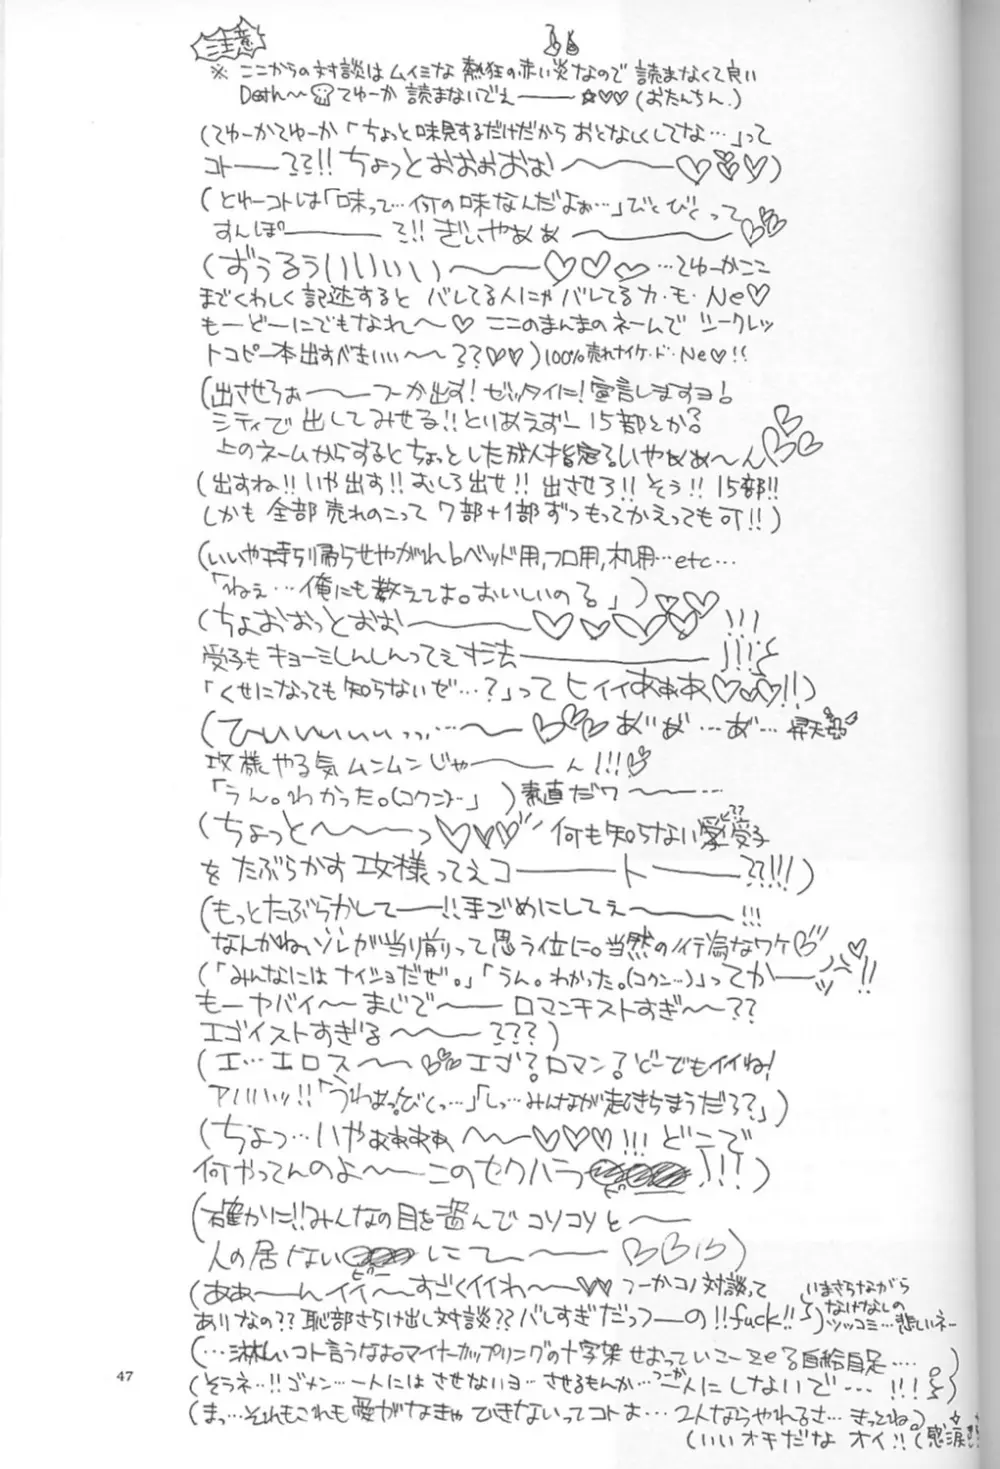 注意
※ ここからの対談はムイミな熱狂の赤い炎なので 読まなくて良い
Death〜 てゆーか 読まないでぇ――― ☆♡♡ (おたんちん。)
(てゆーかてゆーか「ちょっと味見するだけだから おとなしくしてな…」って
コト――??!! ちょっとおおおおお 〜〜〜♡♡♡)
(とゆーコトは「味って…何の味なんだよぉ…」びくびくって
すんぽー―――?!! ぎぃやぁぁ 〜〜〜――♡♡
(ずうるういいいい 〜〜―♡♡♡ …てゆーかここ
までくわしく記述すると バレてる人にゃバレてるカ・モ・Ne♡
もーどーにでもなれ〜♡ ここのまんまのネームで シークレッ
トコピー本出すべきいい〜〜??♡♡) 100%売れナイケ・ド・Ne♡!!
(出させろぉ――〜 つーか出す! ゼッタイに! 宣言しますヨ!
シティで出してみせる!! とりあえずー 15部とか?
上のネームからするとちょっとした成人指定?いやぁぁ〜ん♡♡♡
(出すね!! いや出す!! むしろ出せ!! 出させろ!! そう!! 15部!!
しかも 全部売れのこって 7部+1部ずつもってかえっても可!!)
(いいや持ち帰らせやがれ♭ベッド用,フロ用,机用…etc…
「ねぇ…俺にも教えてよ。おいしいの?」)♡♡♡
(ちょおおっとおお――――♡♡♡♡ !!!
受子もキョーミしんしんってえ寸法――――――!!!
「くせになっても知らないぜ…?」って ヒィィあぁぁぁ♡♡♡!!)
(ひぃぃぃぃぃっっ…〜〜♡♡♡ あ゛あ゛…あ゛…昇天
攻様やる気ムンムンじゃ――〜ん!!!♡
「うん。わかった。(コクン)…」) 素直だワ〜――…
(ちょっと〜〜〜っ♡♡♡ 何も知らない愛受子
??
をたぶらかす攻様ってえコ―――ト―――??!!!)
(もっとたぶらかして――!! 手ごめにしてぇ〜〜―― !!!
なんかね、ソレが当り前って思う位に。当然の行為なワケ♡
(「みんなにはナイショだぜ。」「うん。わかった。(コクン…)」ってか――ッ♡!!
もーヤバイ〜〜 まじで〜―― ロマンチストすぎ〜〜??
エゴイストすぎる 〜〜― ???)
(エ…エロス〜〜 ♡♡ エゴ? ロマン? どーでもイイね!
アハハハッ!!「うわぁっ!びくっ…」「しっ…みんなが起きちまうだろ?」)
(ちょっ…いやぁぁぁぁぁ 〜〜―♡♡♡!!! どこで
何やってんのよ〜〜―このセクハラ !!!)
ピー
(確かに!! みんなの目を盗んで コソコソと〜―
人の居ない にて―〜―― ♡♡♡)
ピー
(ああ〜―んイイ〜―すごくイイわ〜――♡♡ つーかコノ対談って
ありなの?? 恥部さらけ出し対談?? バレすぎだっつーの!! fuck!!)
いまさらながら
なけなしの
ツッコミ…悲しいネー
(…淋しいコト言うなよ。マイナーカップリングの十字架 せおっていこーze? 自給自足……)
(そうネ…!! ゴメン…一人にはさせないヨ…させるもんか…つーか一人にしないで…!!!)
(まっ…それもこれも愛がなきゃ できないってコトよ…2人ならやれるさ…きっとね。)
(いいオキだな オイ!! (感涙
47